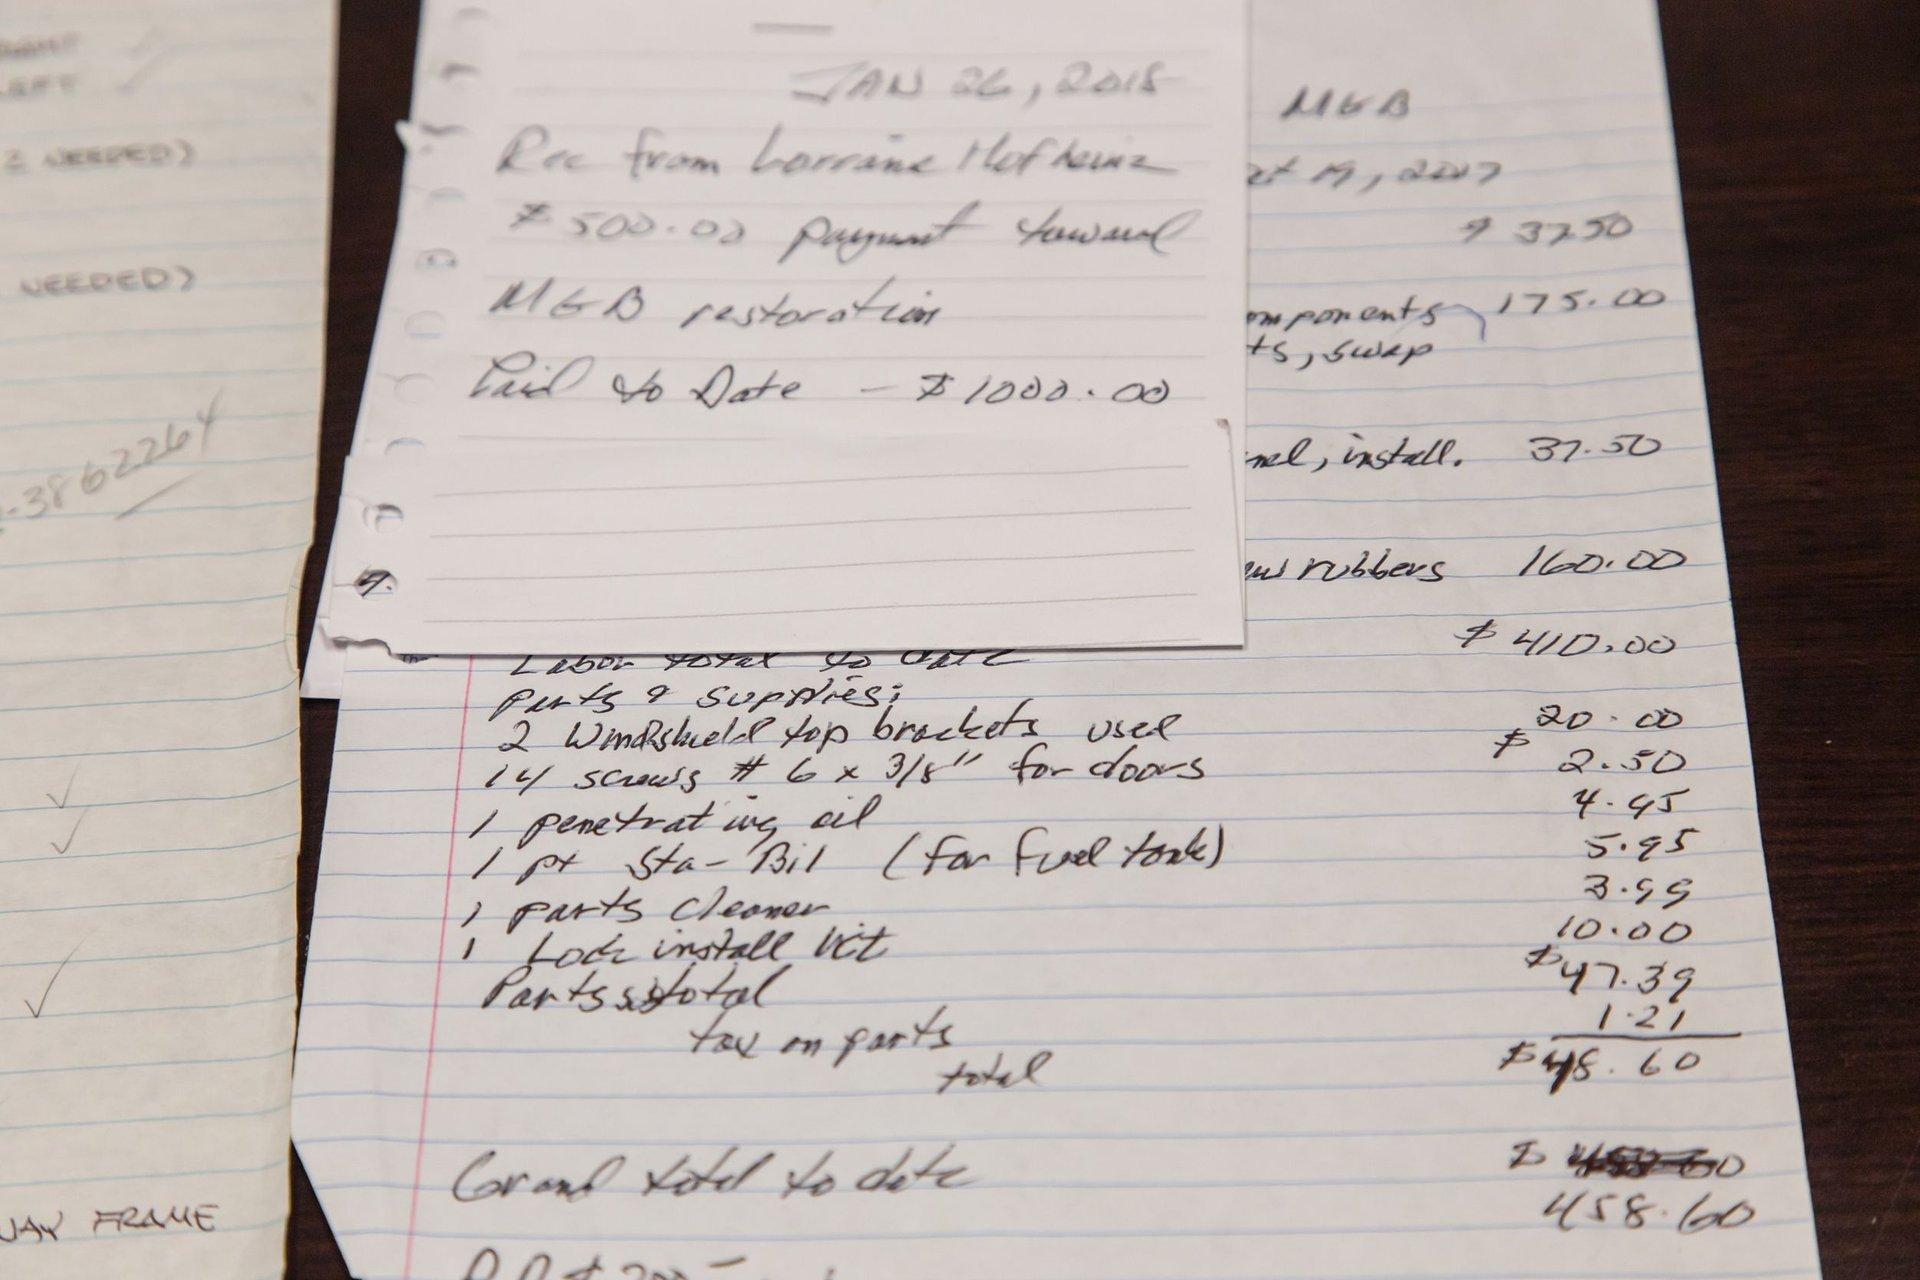 LEFT
2 NEEDED)
NEEDED)
-3862264
FRAME
JAN 26, 2015
Rec from Lorraine Hofheinz
$500.00 payment toward
MGB restoration
Paid to Date - $1000.00
MGB
19, 2007
$ 37.50
omponents 175.00
ts, swap
nel, install. 37.50
rubbers 160.00
Labor total to date $410.00
parts & supplies:
2 Windshield top brackets used 20.00
14 screws # 6 x 3/8" for doors $ 2.50
1 penetrating oil 4.95
1 pt Sta-Bil (for fuel tank) 5.95
1 parts cleaner 3.99
1 Lock install kit 10.00
Parts total $47.39
tax on parts 1.21
total $48.60
Grand total to date $
458.60